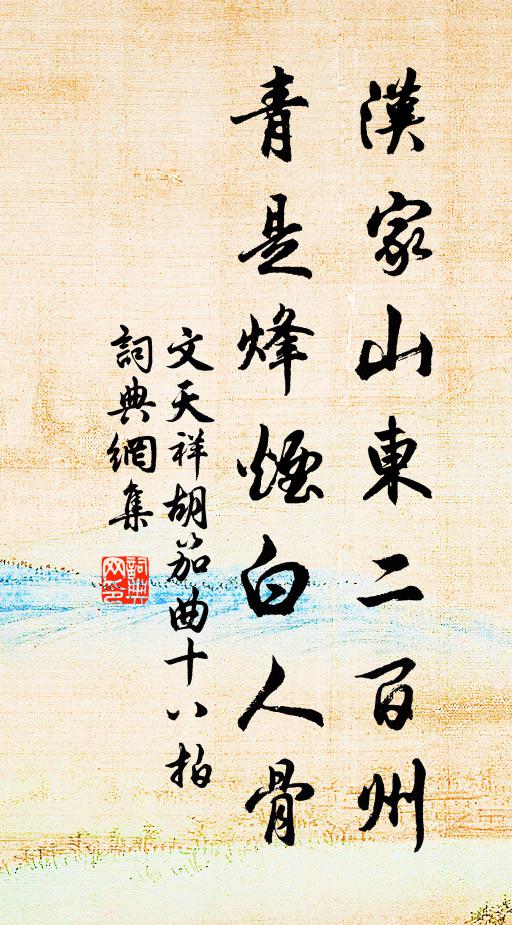 漢家山東二百州
青是烽煙白人骨
文天祥胡笳曲十八拍
詞典網集
詞典网名